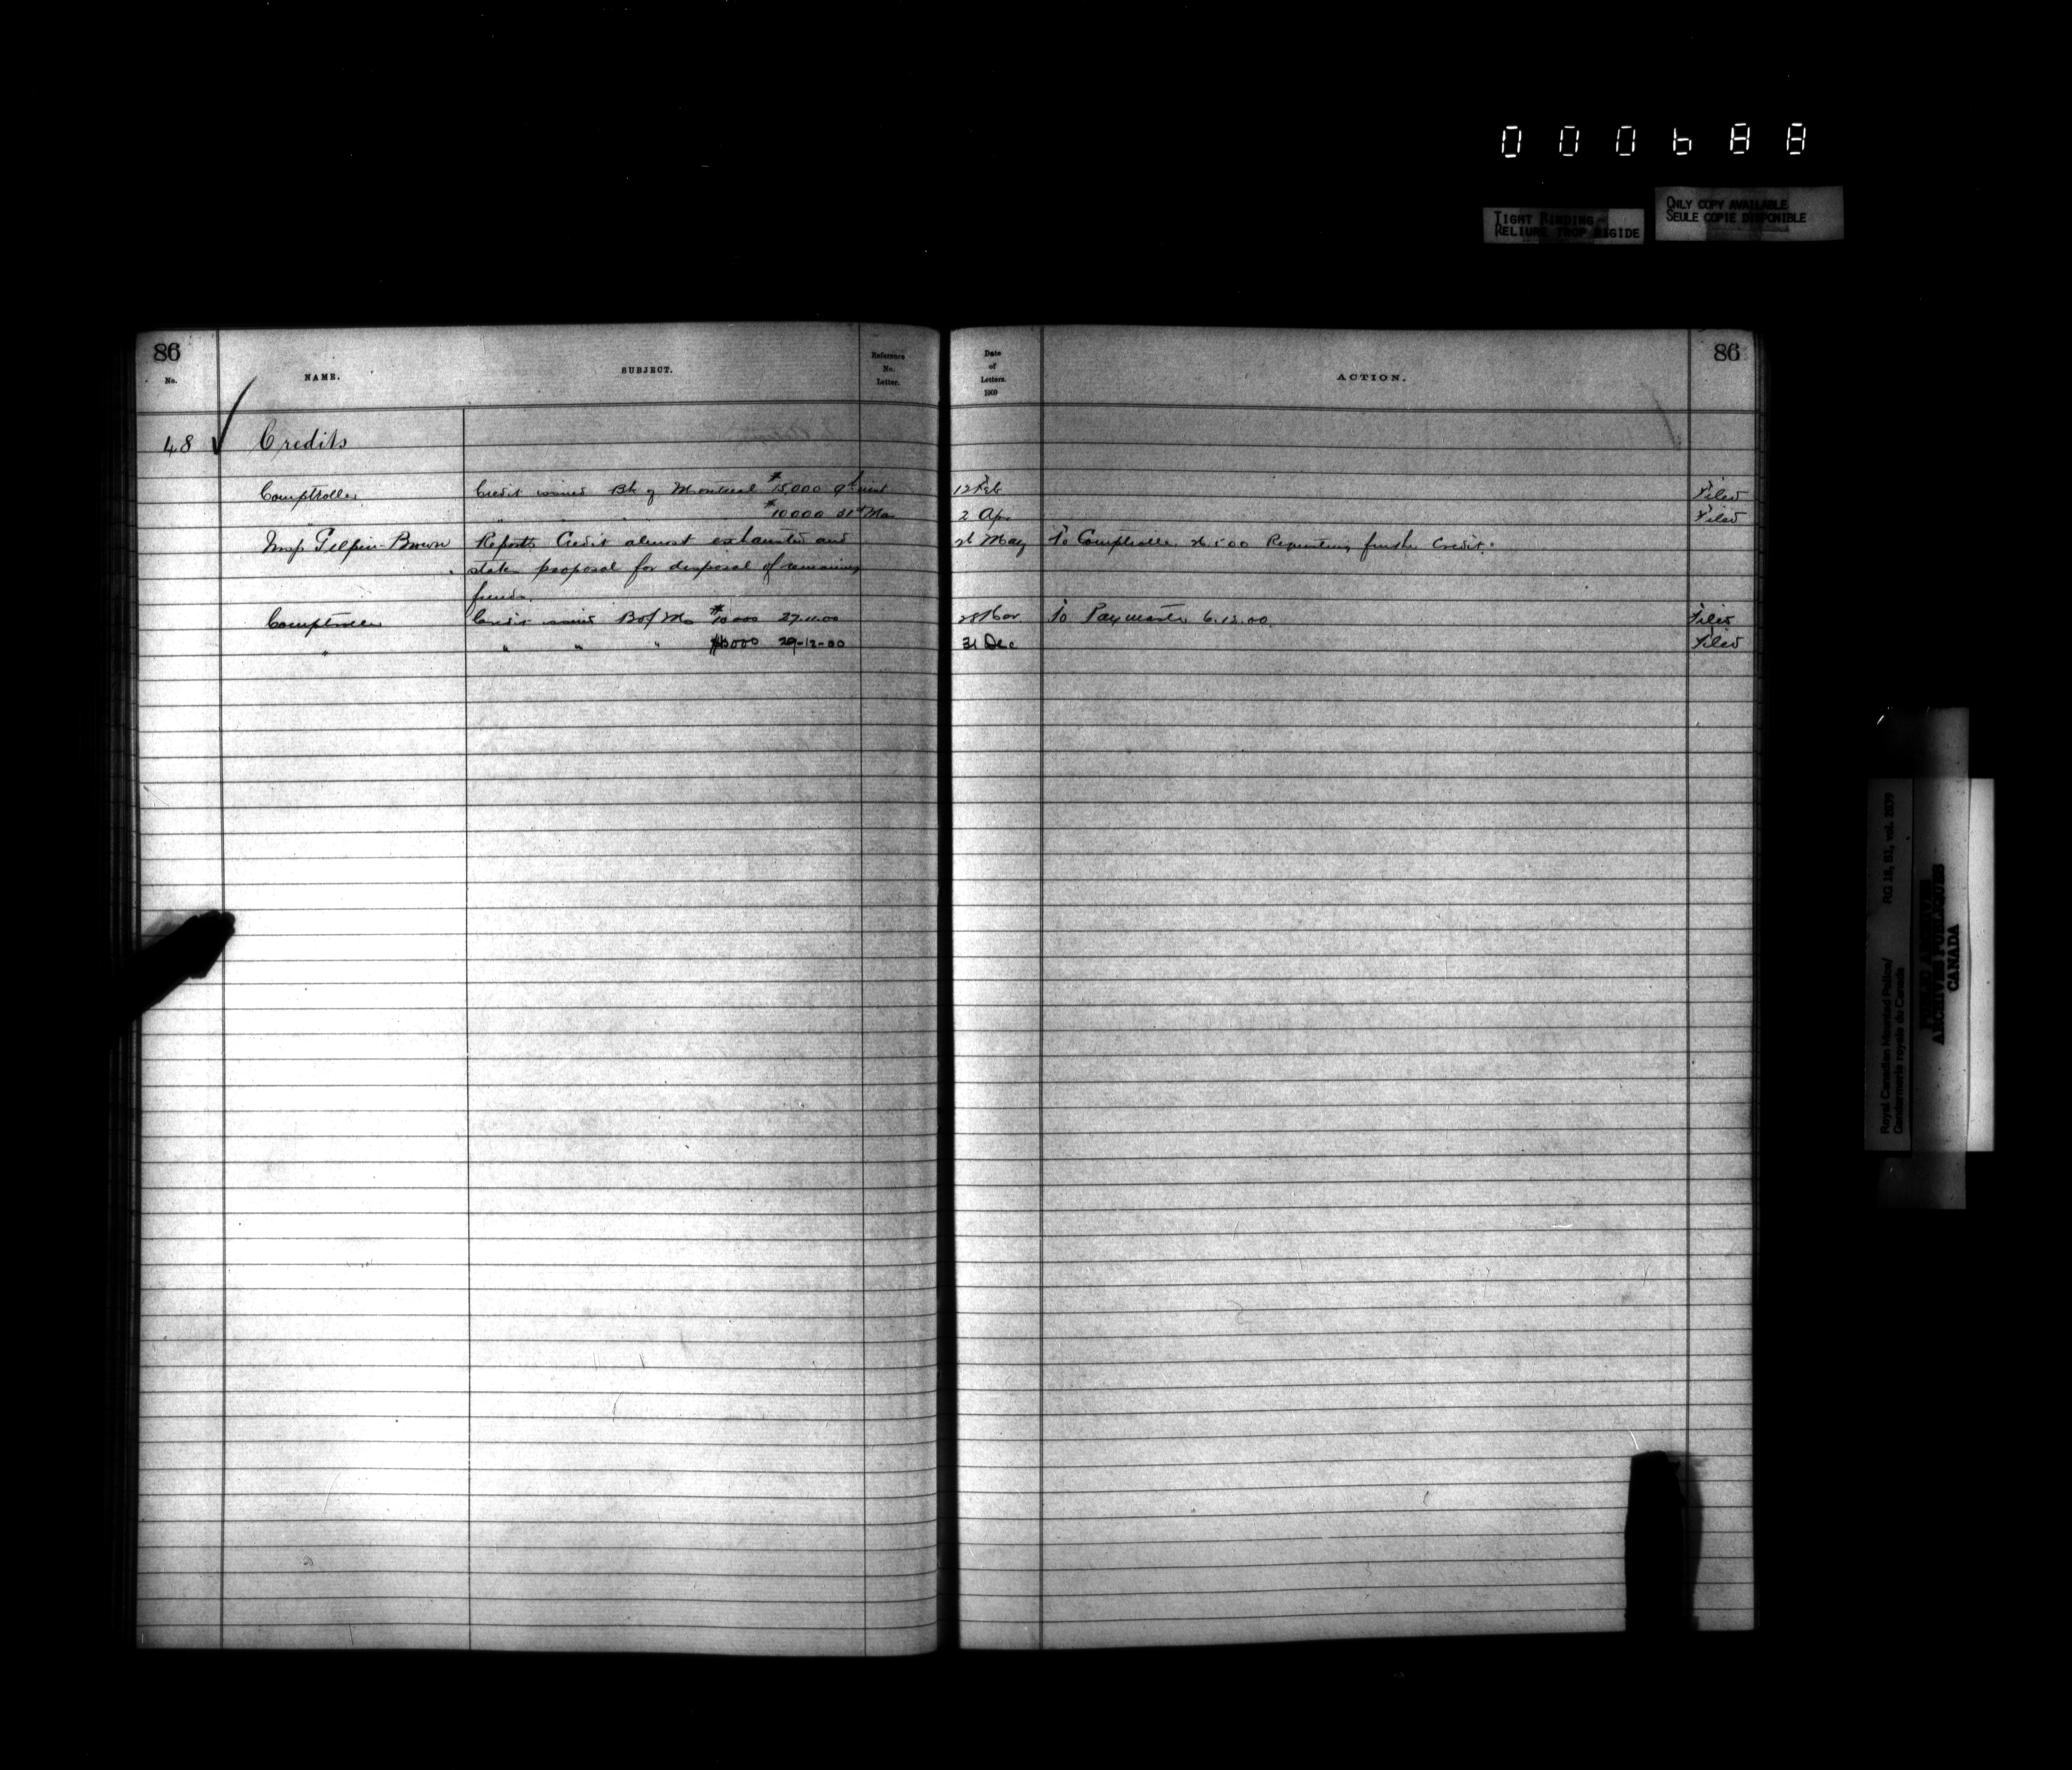 000688
TIGHT BINDING
RELIURE TROP RIGIDE
ONLY COPY AVAILABLE
SEULE COPIE DISPONIBLE
86
No.
NAME.
SUBJECT.
Reference
No.
Letter.
Date
of
Letters.
1900
ACTION.
86
48 Credits
Comptroller Credit issued Bk of Montreal $15,000 9th inst 12 Feb Filed
" " " $10000 31st Mar 2 Apr Filed
Insp Gilpin-Brown Reports Credit almost exhausted and 26 May To Comptroller 26.5.00 Requesting further Credit.
states proposal for disposal of remaining
funds.
Comptroller Credit issued B of M $10000 27.11.00 28 Nov To Paymaster 6.12.00. Filed
" " " " 29-12-00 31 Dec Filed
Royal Canadian Mounted Police/
Gendarmerie royale du Canada
RG 18, B1, vol. 2039
PUBLIC ARCHIVES
ARCHIVES PUBLIQUES
CANADA